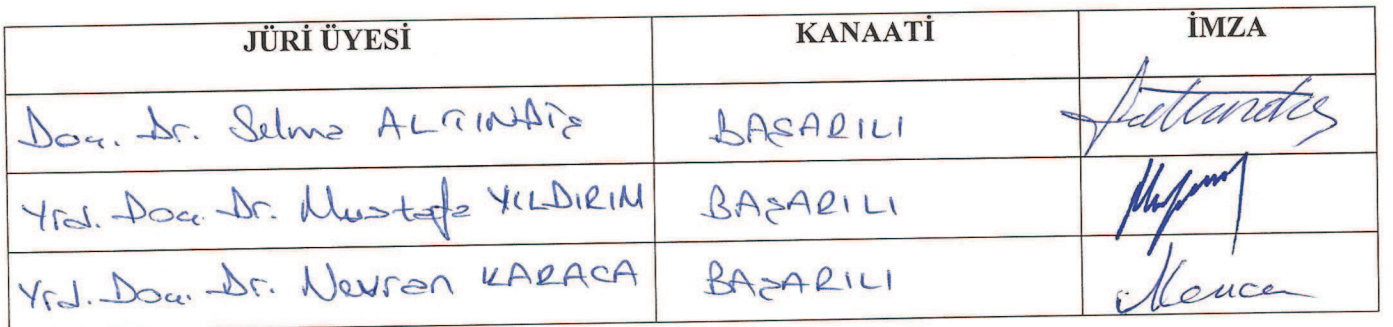 JÜRİ ÜYESİ KANAATİ İMZA
Doç. Dr. Selma ALTINDİŞ BAŞARILI
Yrd. Doç. Dr. Mustafa YILDIRIM BAŞARILI
Yrd. Doç. Dr. Nevran KARACA BAŞARILI